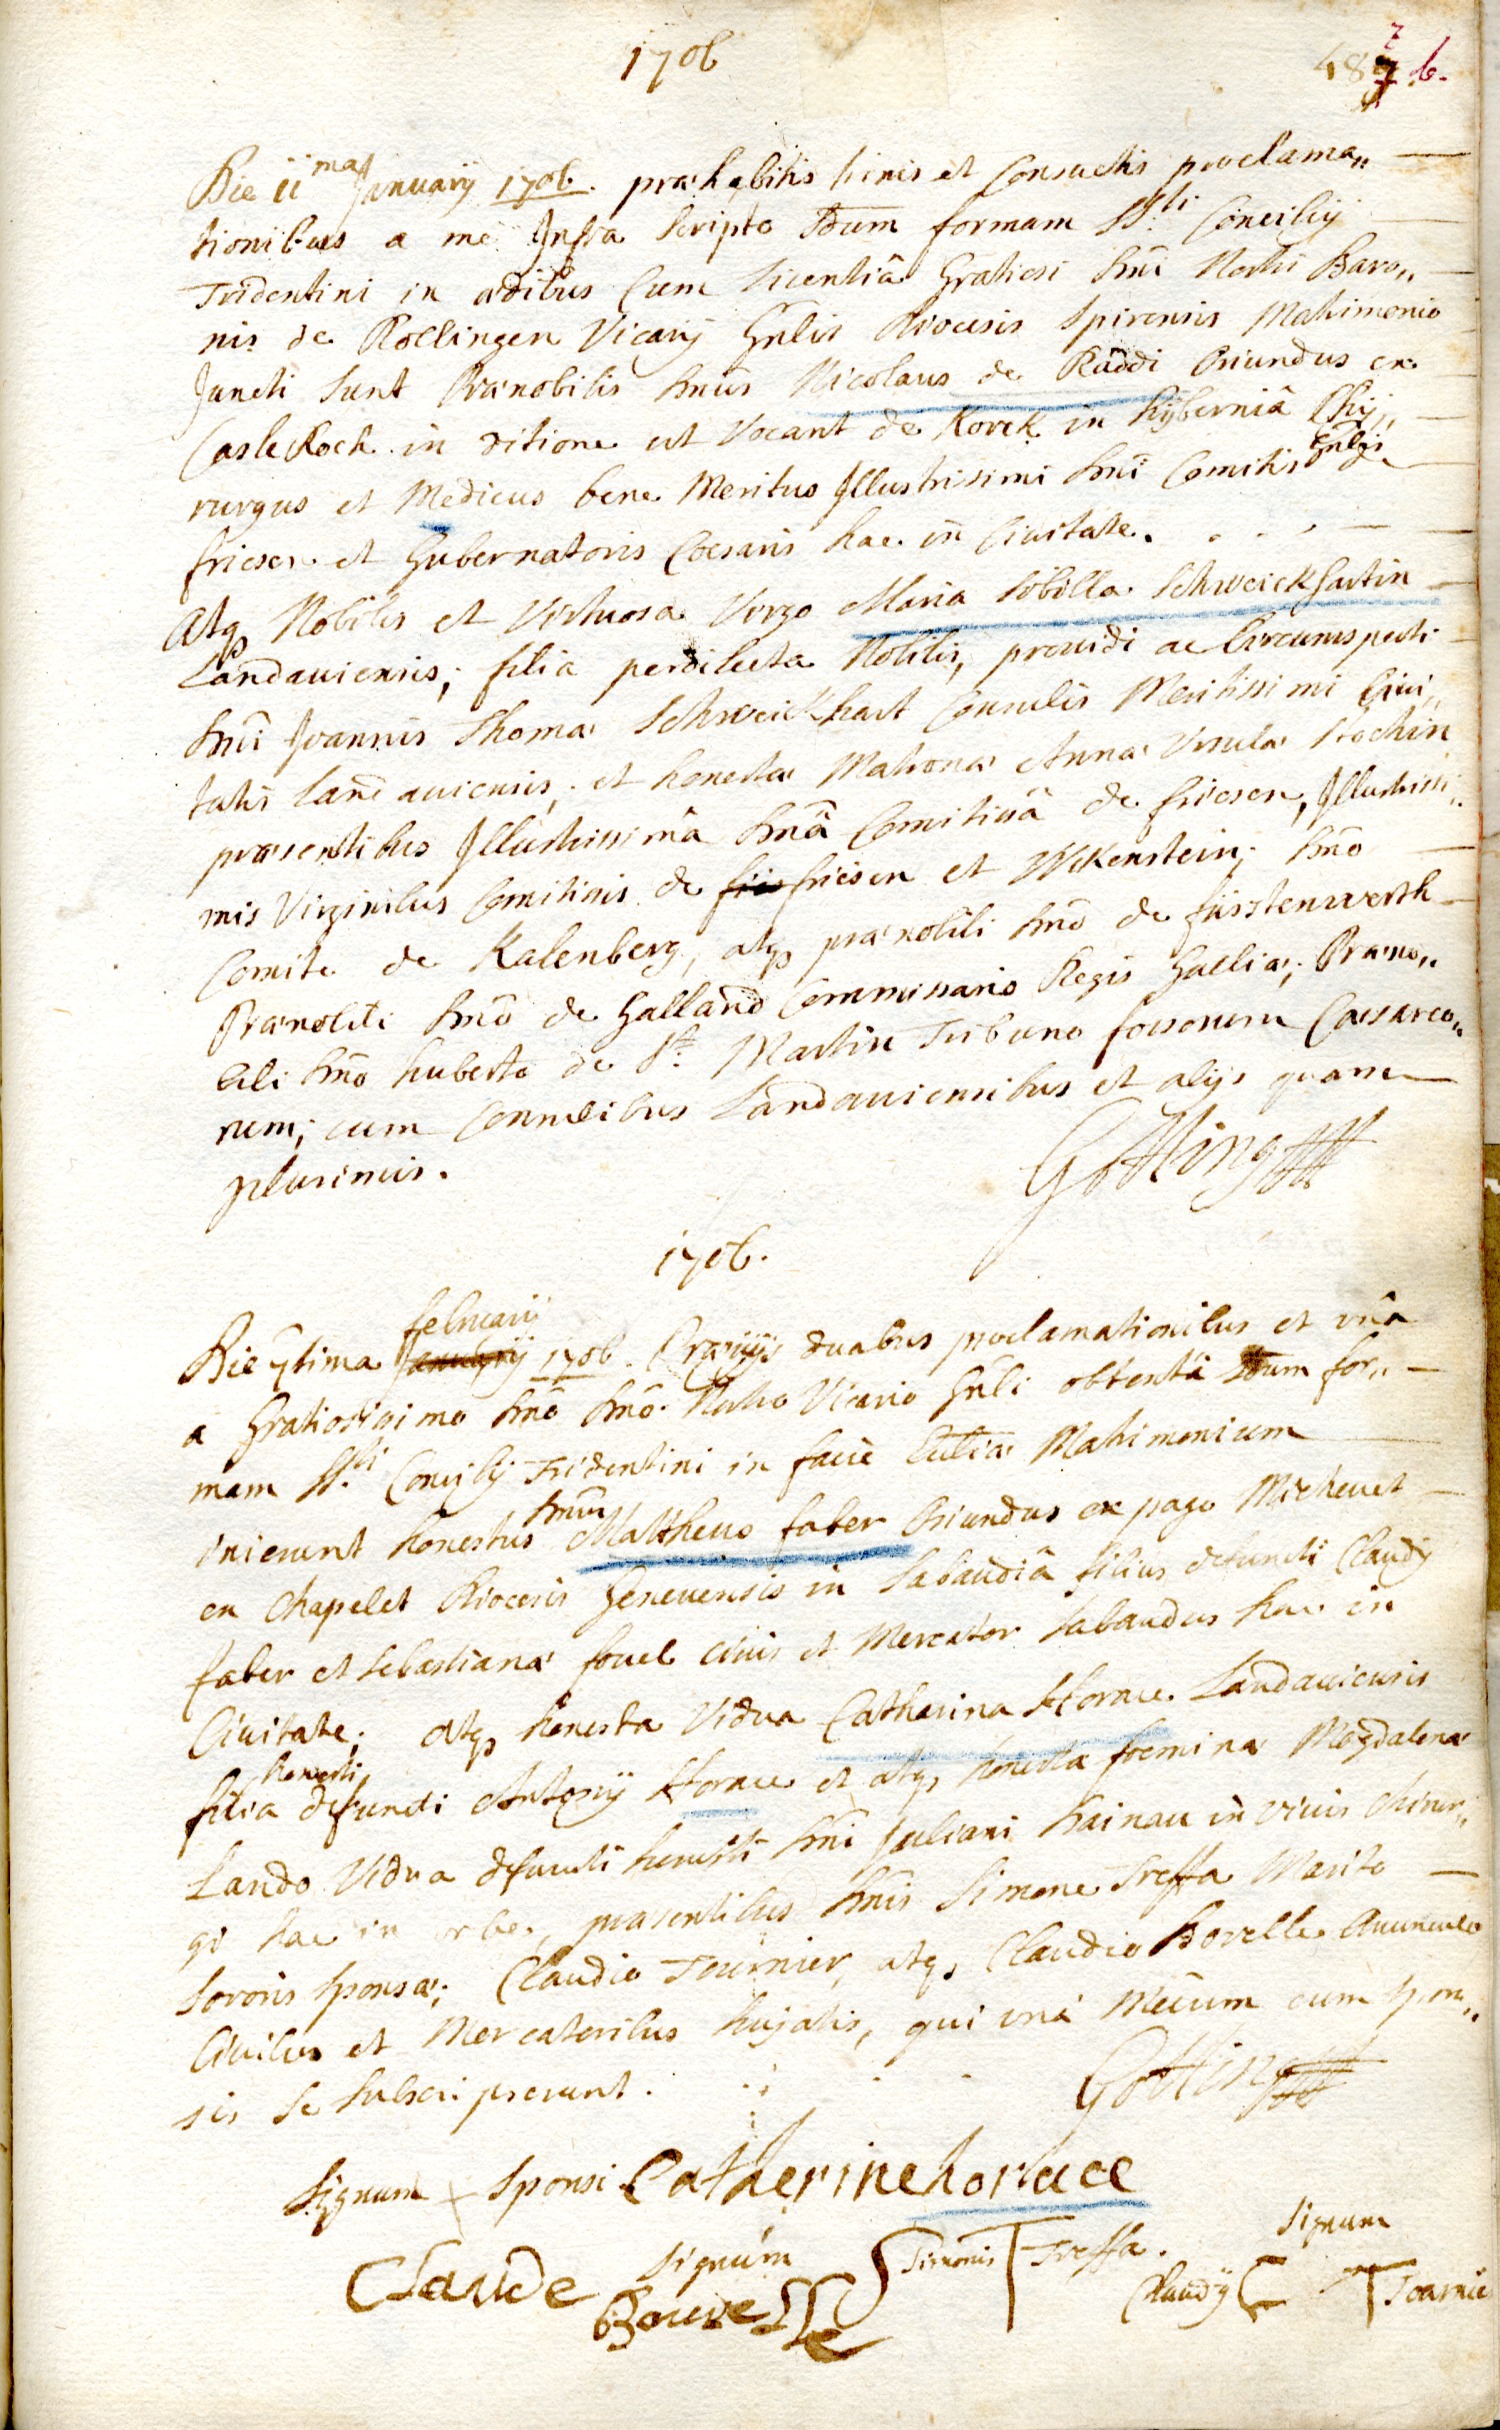 1706
487 b.
Die 11ma January 1706. praehabitis trinis et Consuetis proclama„
tionibus a me Infra scripto s̄dum formam SS.ti Concilij
Tridentini in aedibus Cum licentiâ Gratiosi Dn̄i Nostri Baro„
nis de Rollingen Vicarij Gn̄lis Dioecesis Spirensis Matrimonio
Juncti sunt Praenobilis Dn̄us Nicolaus de Raddi Oriundus ex
Casle Roch in ditione ut Vocant de Korck in hÿberniâ Chÿ„
rurgus et Medicus bene Meritus Illustrissimi Dn̄i Comitis Gn̄lis de
friesen et Gubernatoris Caesaris hac in Civitate.
Atq₃ Nobilis et Virtuosa Virgo Maria Sibilla Schweickhartin
Landaviensis; filia perdilecta Nobilis, providi ac Circumspecti
Dn̄i Joannis Thomae Schweickhart Consulis Meritissimi Civi„
tatis Landaviensis, et honestae Matronae Annae Ursulae Stöchin
praesentibus Illustrissimâ Dn̄â Comitissâ de friesen, Illustrissi„
mis Virginibus Comitissis de friesen et Wikenstein; Dn̄o
Comite de Kalenberg, atq₃ praenobili Dn̄o de fürstenwerth
Praenobili Dn̄o de Galland Commissario Regis Galliae; Praeno„
bili Dn̄o huberto de St: Martin Tribuno fossorum Caesareo„
rum; cum Consulibus Landaviensibus et alijs quam
plurimis.
Gotting
1706.
februarij
Die 7tima Januarij 1706. Praevijs duabus proclamationibus et unâ
a Gratiosissimo Dn̄o Dn̄o Nostro Vicario Gn̄li obtentâ s̄dum for„
mam SS.ti Concilij Tridentini in facie Ecclīae Matrimonium
inierunt honestus Dn̄us Mattheus faber Oriundus ex pago Micheuet
en Chapelet Dioecesis Genevensis in Sabaudiâ filius defuncti Claudij
faber et Sebastianae fouel civis et Mercator Sabaudus hac in
Civitate; atq₃ honesta Vidua Catharina Horace Landaviensis
filia honesti defuncti Antonij Horace et atq₃ honesta foemina Magdalena
Lando Vidua defuncti honesti Dn̄i Juliani hainau in vivis Chirur„
gi hac in orbe, praesentibus Dn̄is Simone Treffa Marito
Sororis Sponsae; Claudio Tournier, atq₃ Claudio Bovelle Avunculo
Civibus et Mercatoribus hujatis, qui unâ Mecum cum spon„
sis se subscripserunt.
Gotting
Signum × Sponsi Catherine horace
Claude Bouvelle
Signum S Simonis T Treffa.
Signum
Claudÿ C T Tournie